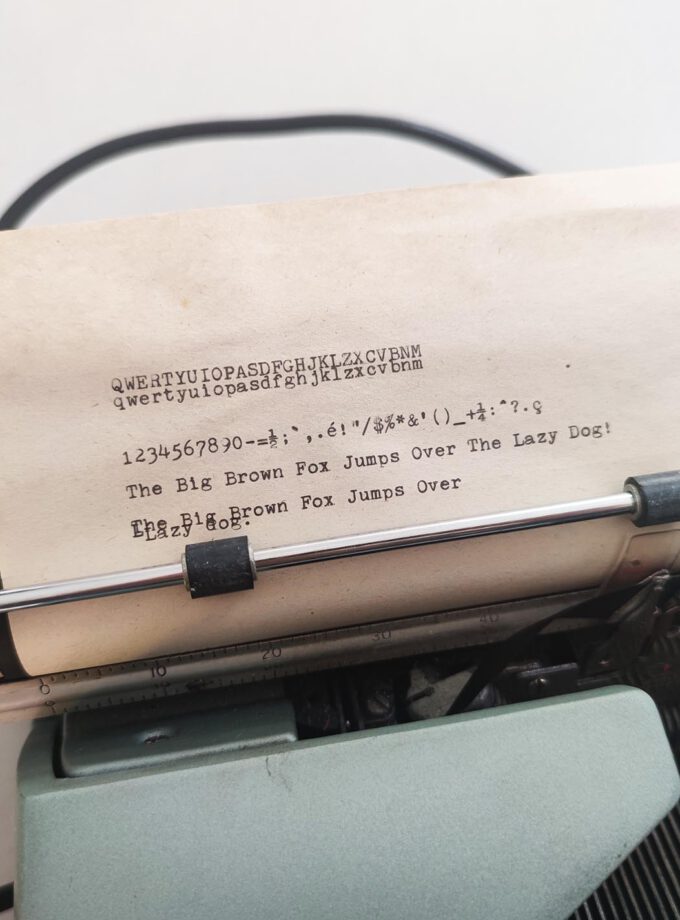 QWERTYUIOPASDFGHJKLZXCVBNM
qwertyuiopasdfghjklzxcvbnm
1234567890-=½;`,.é!"/$%*&'()_+¼:^?.ç
The Big Brown Fox Jumps Over The Lazy Dog!
The Big Brown Fox Jumps Over
The Big Brown
Lazy dog.
0 10 20 30 40